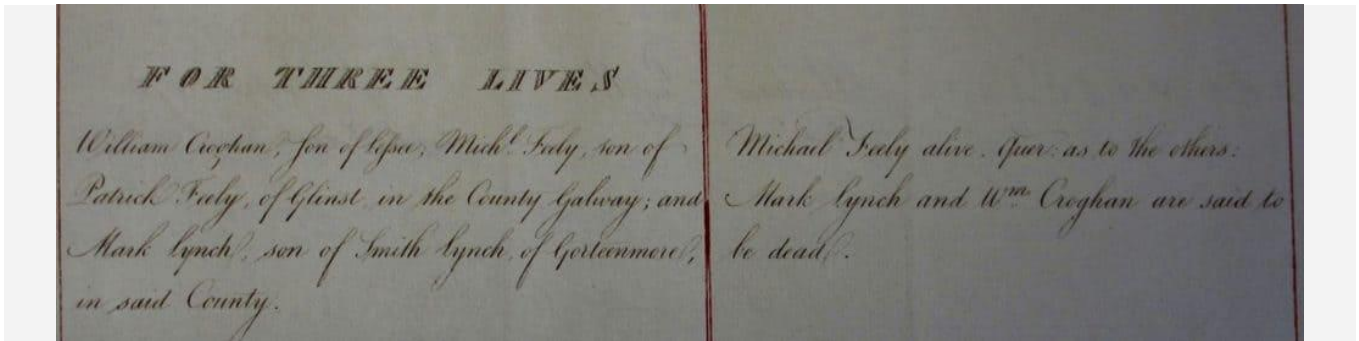 FOR THREE LIVES
William Croghan, son of Lessee; Mich.l Feely, son of
Patrick Feely, of Glinsk, in the County Galway; and
Mark Lynch, son of Smith Lynch, of Gorteenmore,
in said County.
Michael Feely alive. Quer: as to the others:
Mark Lynch and Wm. Croghan are said to
be dead.